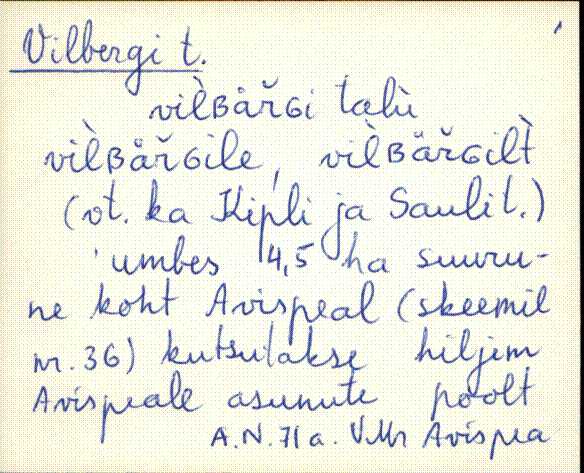 Vilbergi t.
vil̀ʙäřɢi talu
vil̀ʙäřɢile, vil̀ʙäřɢilt̀
(vt. ka Kipli ja Sauli t.)
umbes 4,5 ha suuru-
ne koht Avispeal (skeemil
nr. 36) kutsutakse hiljem
Avispeale asunute poolt
A.N. 71 a. VMr Avispea